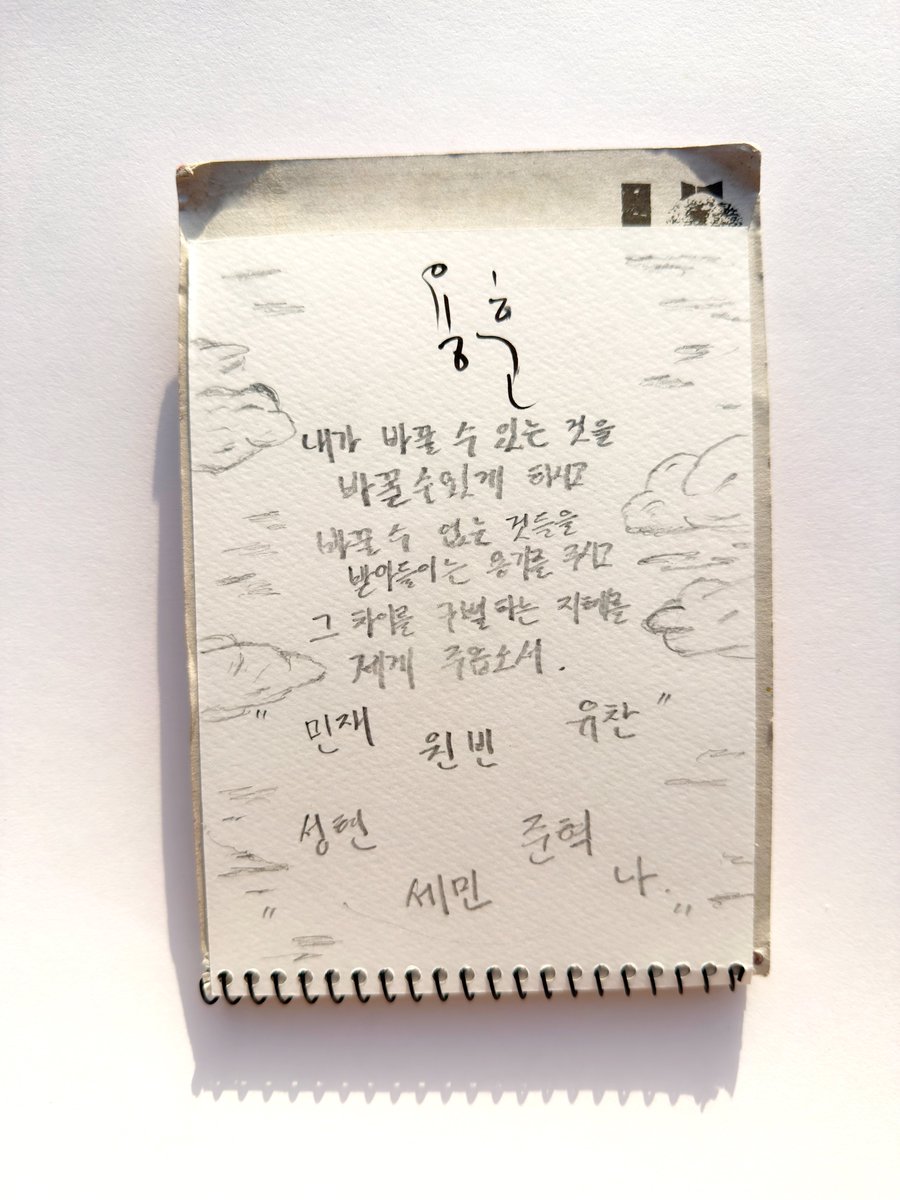 용훈
내가 바꿀 수 있는 것을
바꿀 수 있게 하시고
바꿀 수 없는 것들을
받아들이는 용기를 주시고
그 차이를 구별하는 지혜를
제게 주옵소서.
" 민재 원빈 유찬 "
성현 준혁
" 세민 나. "